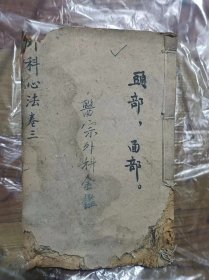 頭部，面部。
醫宗外科金鑑
外科心法 卷三